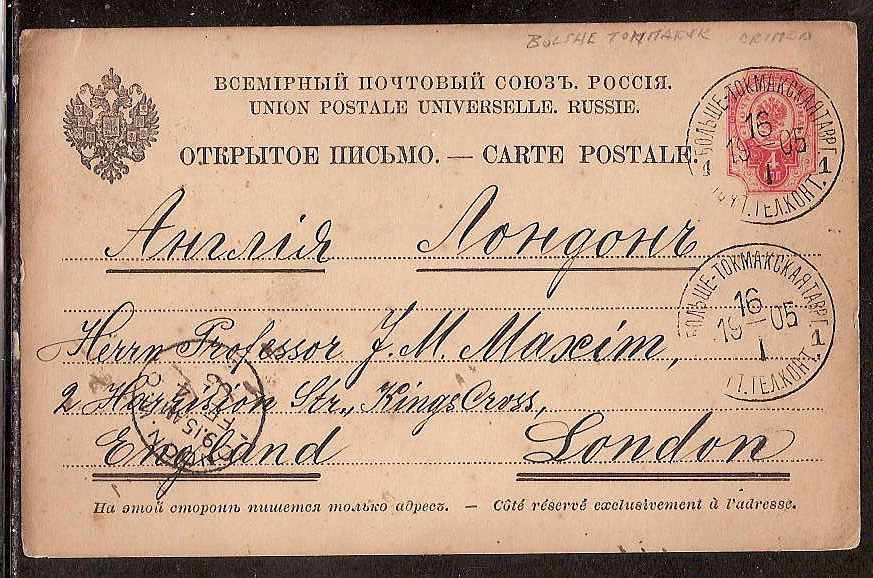 BOLSHE TOKMAKSK CRIMEA
ВСЕМІРНЫЙ ПОЧТОВЫЙ СОЮЗЪ. РОССІЯ.
UNION POSTALE UNIVERSELLE. RUSSIE.
ОТКРЫТОЕ ПИСЬМО. — CARTE POSTALE.
БОЛЬШЕ-ТОКМАКСКАЯ ТАВР. Г.
16
19 05
I
1 1
ПОЧТ. ТЕЛ. КОНТ.
Англія Лондонъ
БОЛЬШЕ-ТОКМАКСКАЯ ТАВР. Г.
16
19 05
I
1
Т. ТЕЛ. КОНТ.
Herrn Professor J. M. Maxim,
2 Harrison Str., Kings Cross,
England London
9.15 AM
На этой сторонѣ пишется только адресъ. — Côté réservé exclusivement à l'adresse.